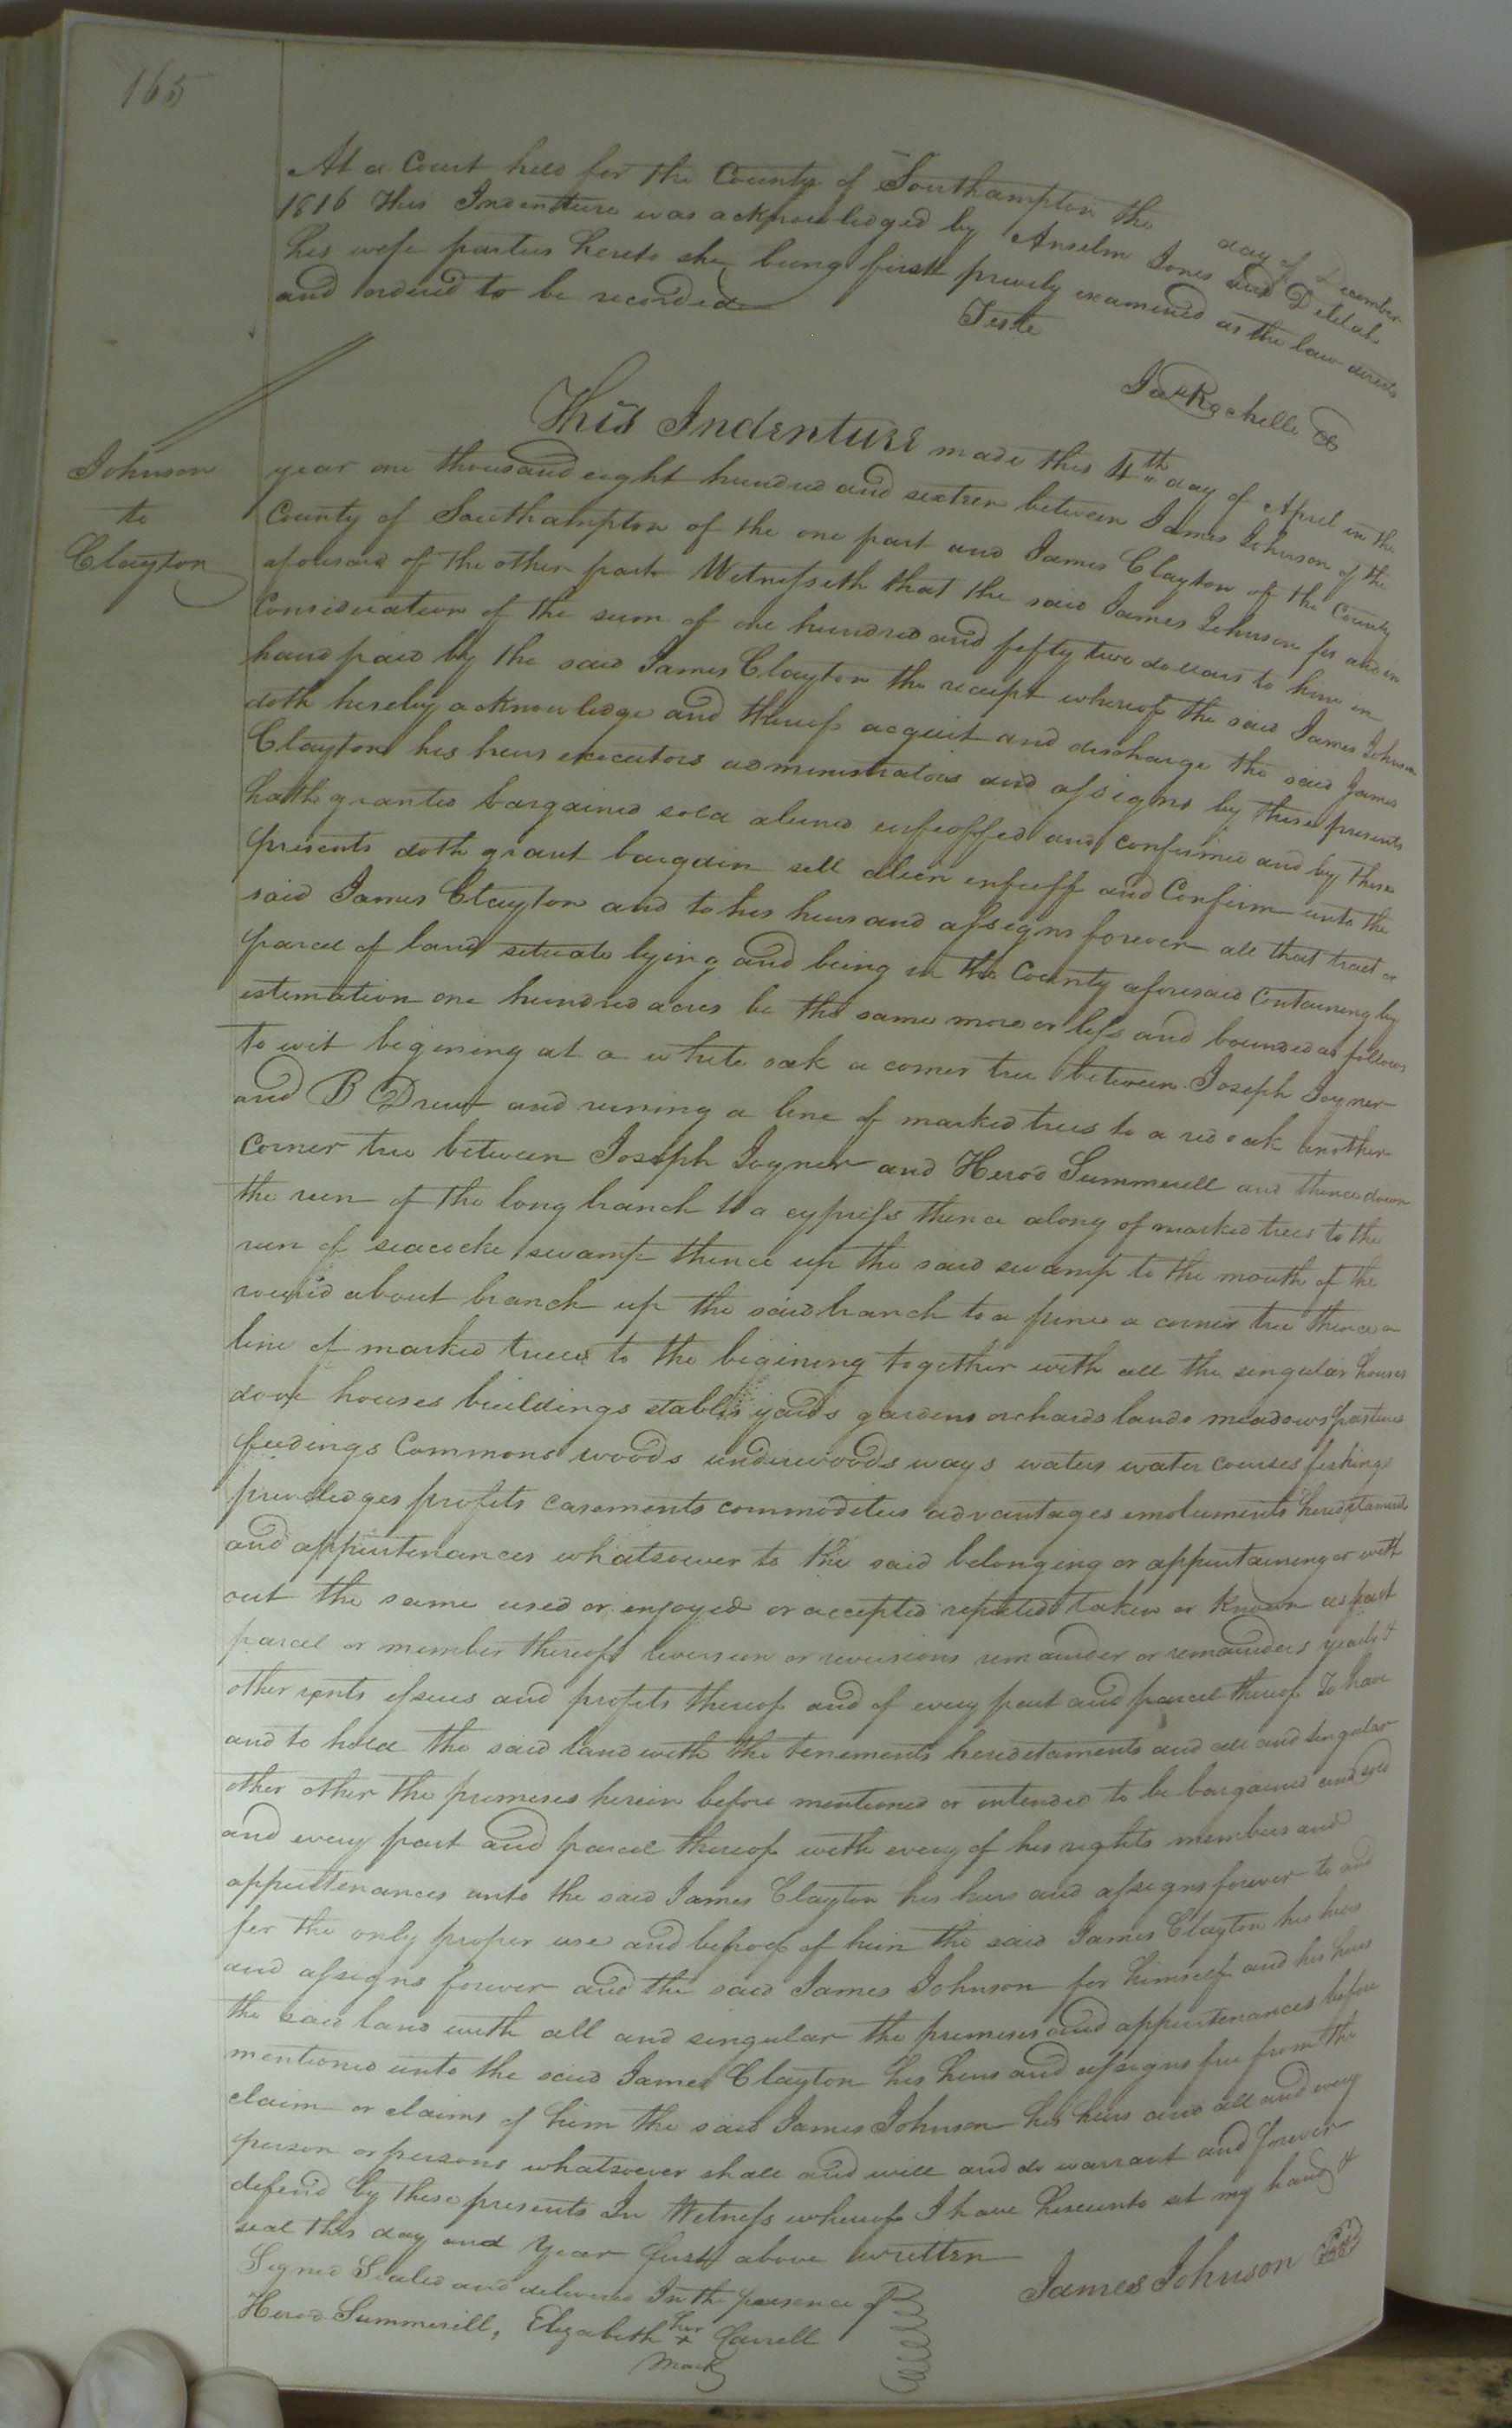 165
At a Court held for the County of Southampton the day of December
1816 This Indenture was acknowledged by Anselm Jones and Delilah
his wife parties hereto she being first privily examined as the law directs
and ordered to be recorded
Teste
Jas Rochelle
Johnson
to
Clayton
This Indenture made this 4th day of April in the
year one thousand eight hundred and sixteen between James Johnson of the
County of Southampton of the one part and James Clayton of the County
aforesaid of the other part Witnesseth that the said James Johnson for and in
Consideration of the sum of one hundred and fifty two dollars to him in
hand paid by the said James Clayton the receipt whereof the said James Johnson
doth hereby acknowledge and thereof acquit and discharge the said James
Clayton his heirs executors administrators and assigns by these presents
hath granted bargained sold aliened enfeoffed and confirmed and by these
presents doth grant bargain sell alien enfeoff and Confirm unto the
said James Clayton and to his heirs and assigns forever all that tract or
parcel of land situate lying and being in the County aforesaid Containing by
estimation one hundred acres be the same more or less and bounded as follows
to wit begining at a white oak a corner tree between Joseph Joyner
and B Drewt and runing a line of marked trees to a red oak another
Corner tree between Joseph Joyner and Herod Summerell and thence down
the run of the long branch to a cypress thence along of marked trees to the
run of seacocke swamp thence up the said swamp to the mouth of the
round about branch up the said branch to a pine a corner tree thence a
line of marked trees to the begining together with all the singular houses
dove houses buildings stables yards gardens orchards lands meadows pastures
feedings Commons woods underwoods ways waters water courses fishings
priviledges profits easements commodities advantages emoluments hereditaments
and appurtenances whatsoever to the said belonging or appurtaining or with
out the same used or enjoyed or accepted reputed taken or known as part
parcel or member thereof reversion or reversions remainder or remainders yearly &
other rents issues and profits thereof and of every part and parcel thereof To have
and to hold the said land with the tenements hereditaments and all and singular
other other the premises herein before mentioned or intended to be bargained and sold
and every part and parcel thereof with every of his rights members and
appurtenances unto the said James Clayton his heirs and assigns forever to and
for the only proper use and behoof of him the said James Clayton his heirs
and assigns forever and the said James Johnson for himself and his heirs
the said land with all and singular the premises and appurtenances before
mentioned unto the said James Clayton his heirs and assigns free from the
claim or claims of him the said James Johnson his heirs and all and every
person or persons whatsoever shall and will and do warrant and forever
defend by these presents In Witness whereof I have hereunto set my hand &
seal this day and year first above written
Signed Sealed and delivered In the presence of
James Johnson
Herod Summerill, Elizabeth her x Carrell
mark